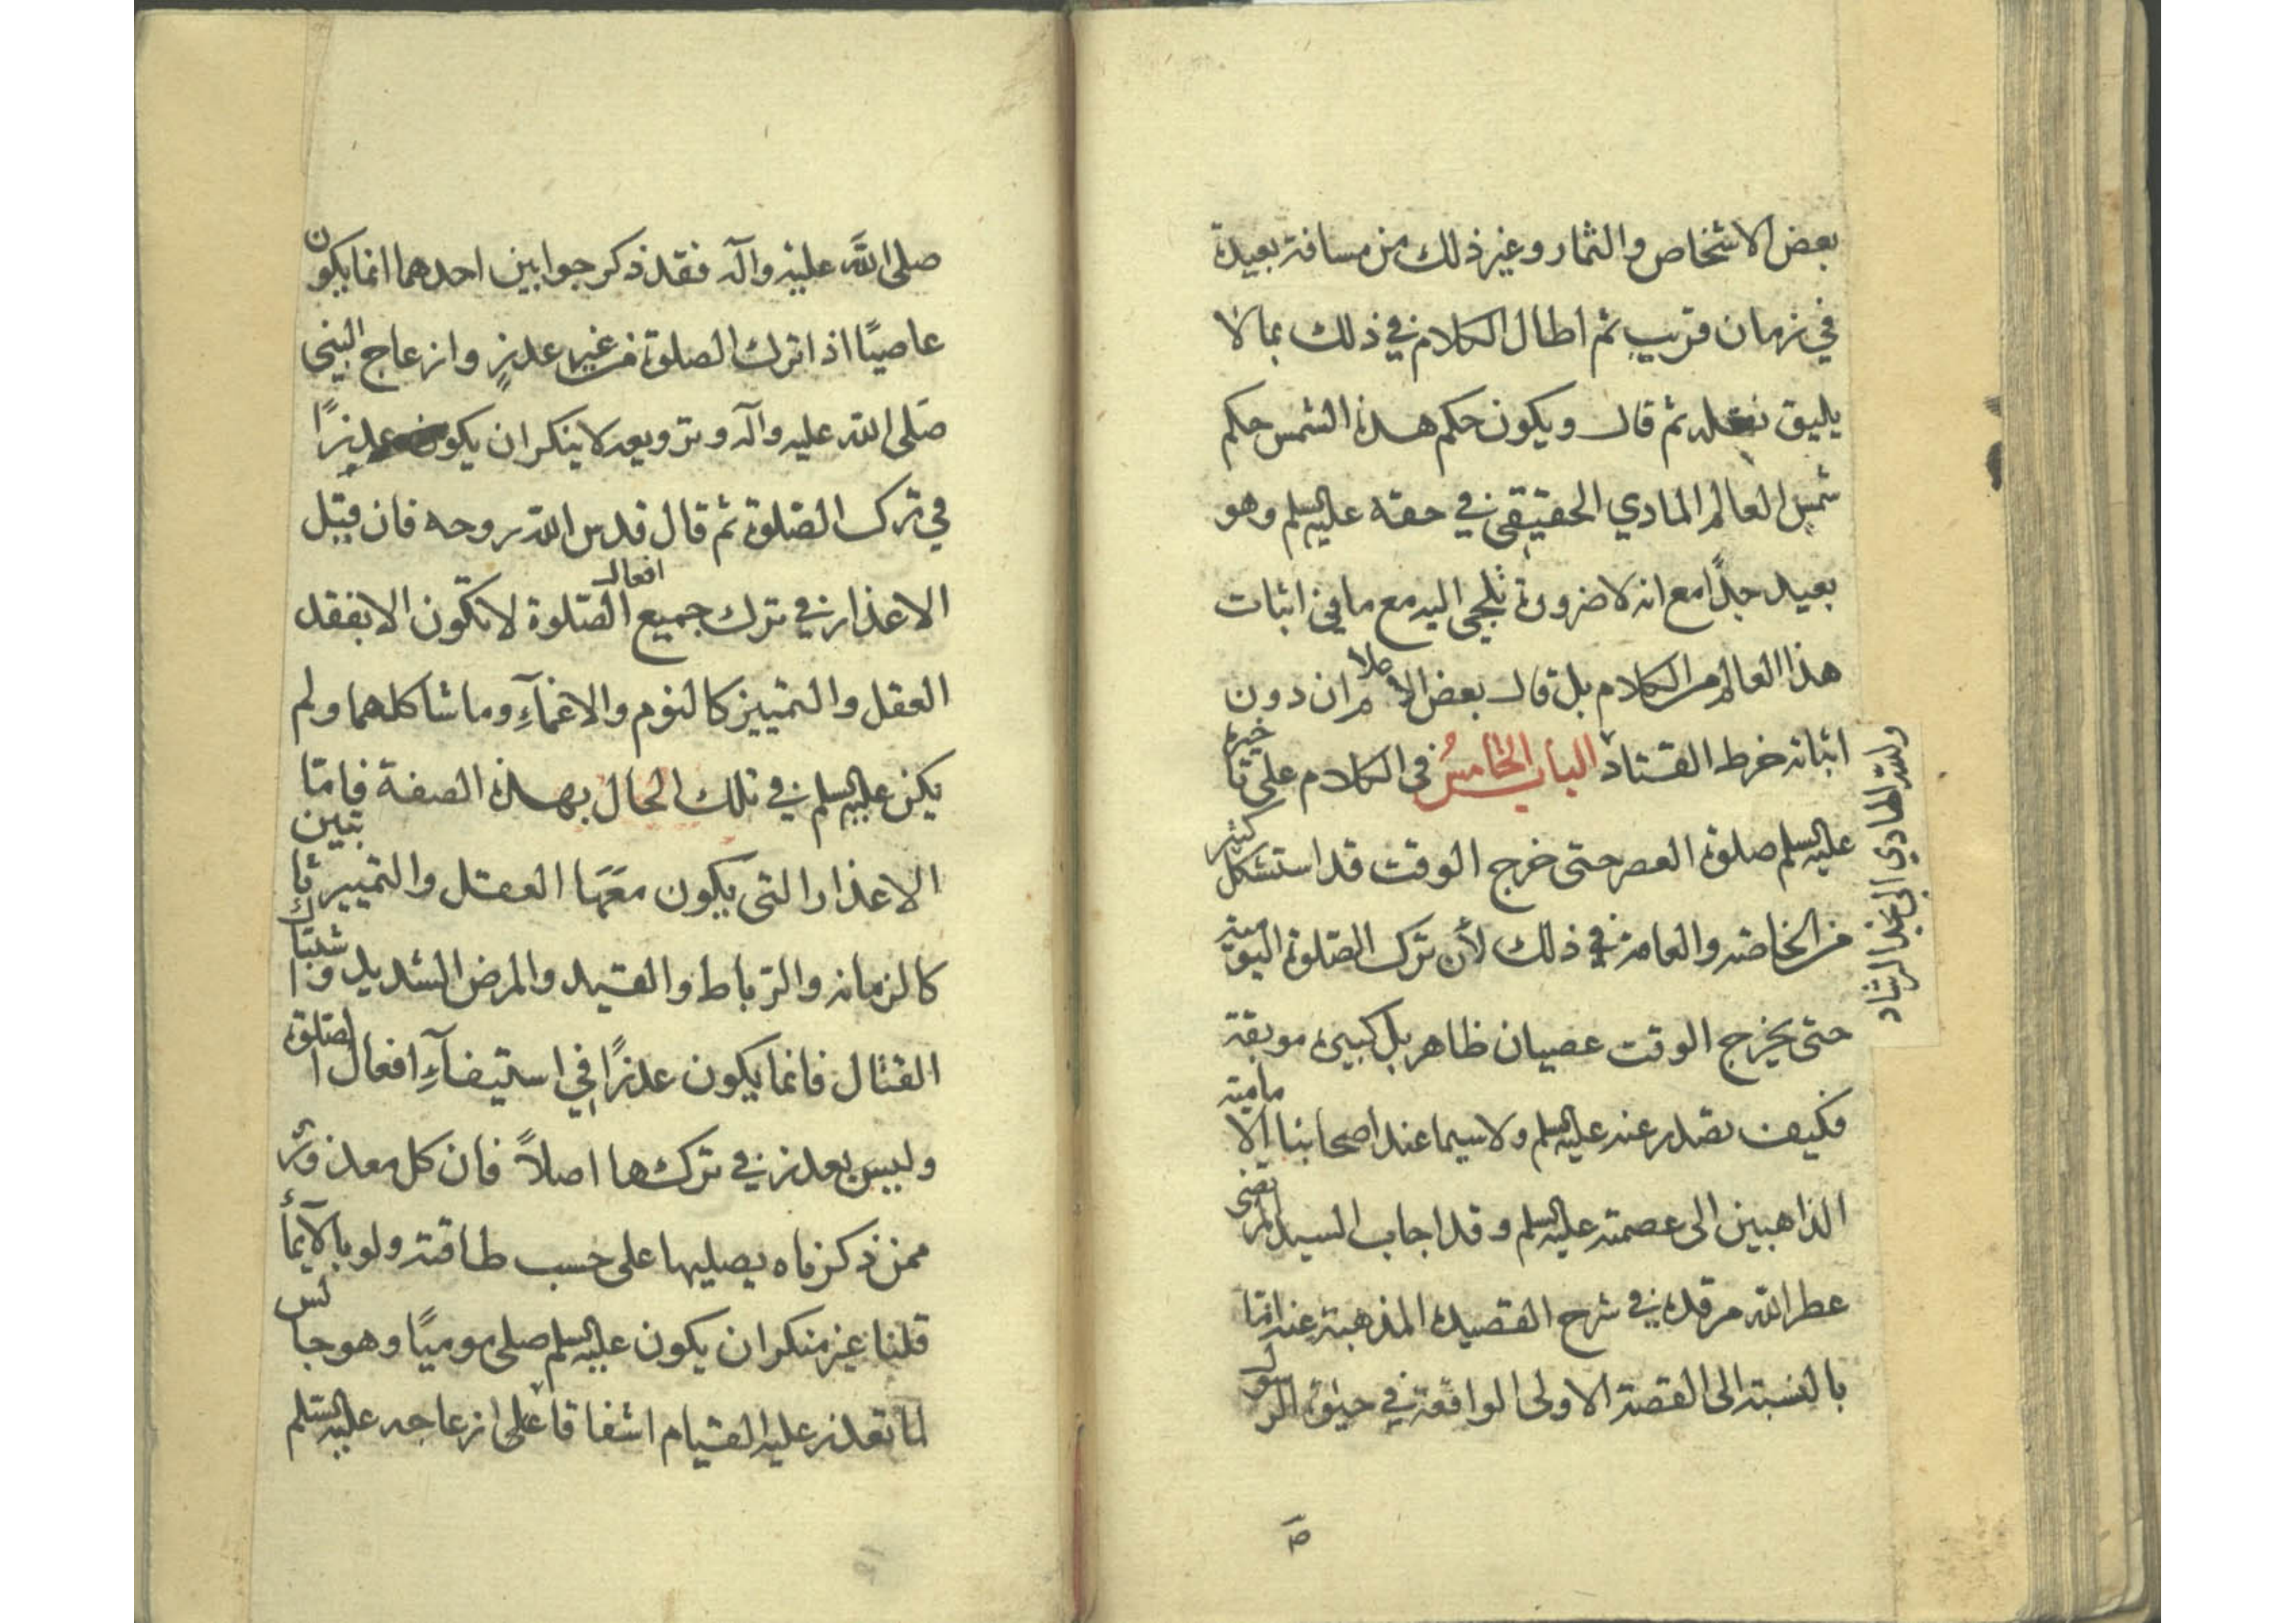 بعض الاشخاص والثمار وغير ذلك من مسافة بعيدة
في زمان قريب ثم اطال الكلام في ذلك بما لا
يليق نقله ثم قال ويكون حكم هذه الشمس حكم
شمس العالم المادي الحقيقي في حقه عليه السلم وهو
بعيد جدًا مع انه لا ضرورة تلجئ اليه مع ما في اثبات
هذا العالم من الكلام بل قال بعض الاعلام ان دون
اثباته خرط القتاد الباب الخامسُ في الكلام على تاخيره
عليه السلم صلوة العصر حتى خرج الوقت قد استشكل كثير
من الخاصة والعامة في ذلك لأن ترك الصلوة اليومية
حتى يخرج الوقت عصيان ظاهر بل كبيرة موبقة
فكيف تصدر عنه عليه السلم ولا سيما عند اصحابنا الامامية
الذاهبين الى عصمته عليه السلم وقد اجاب السيد المرتضى
عطر الله مرقده في شرح القصيدة المذهبة عنه امّا
بالنسبة الى القصة الاولى الواقعة في حيوة الرسول
والله الهادي الى نجد الرشاد
صلى الله عليه وآله فقد ذكر جوابين احدهما انما يكون
عاصيًا اذا ترك الصلوة من غير عذرٍ وازعاج النبي
صلى الله عليه وآله وترويعه لا ينكر ان يكون عذرًا
في ترك الصلوة ثم قال قدس الله روحه فان قيل
الاعذار في ترك جميع افعال الصّلوة لا تكون الا بفقد
العقل والتمييز كالنوم والاغمآءِ وما شاكلهما ولم
يكن عليه السلم في تلك الحال بهذه الصفة فامّا
الاعذار التي يكون معَهَا العقل والتمييز ثابتين
كالزمانة والرّباط والقيد والمرض الشديد واشتباك
القتال فانما يكون عذرًا في استيفآءِ افعال الصلوة
وليس بعذر في تركها اصلاً فان كل معذور
ممن ذكرناه يصليها على حسب طاقته ولو بالايمأ
قلنا غير منكر ان يكون عليه السلم صلى موميًا وهو جالس
لمّا تعذر عليه القيام اشفاقا على ازعاجه عليه السلم